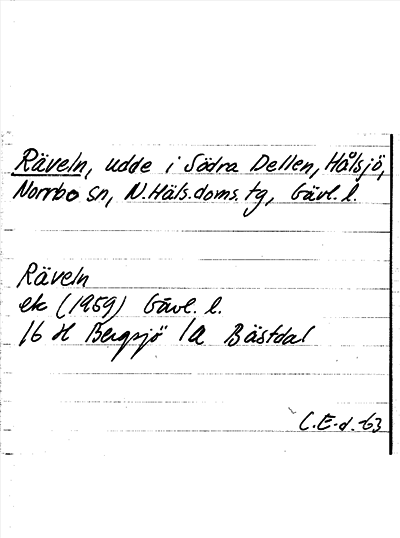 Räveln, udde i Södra Dellen, Hålsjö,
Norrbo sn, N.Häls.doms.tg, Gävl. l.
Räveln
ek (1959) Gävl. l.
16 H Bergsjö 1a Bästdal
C.E-d.-63